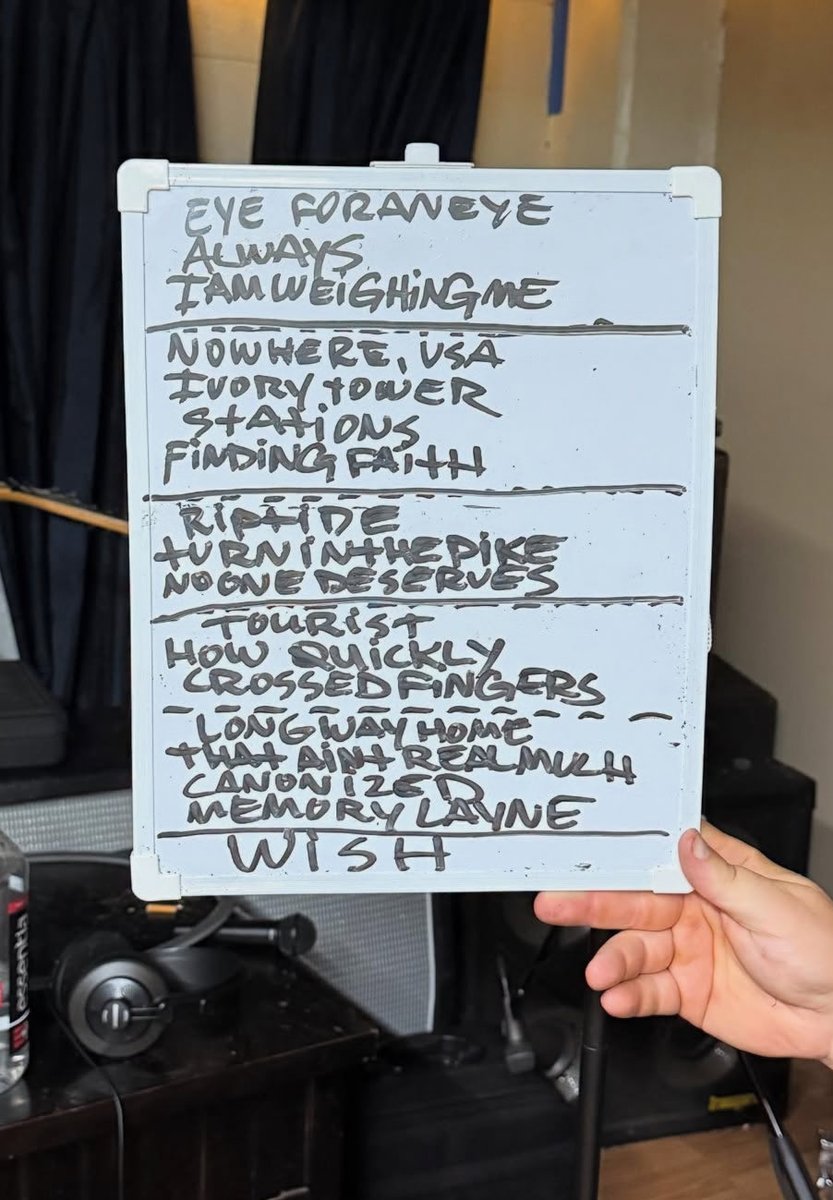 EYE FOR AN EYE
ALWAYS
I AM WEIGHING ME
NOWHERE, USA
IVORY TOWER
STATIONS
FINDING FAITH
RIPTIDE
TURN IN THE PIKE
NO ONE DESERVES
TOURIST
HOW QUICKLY
CROSSED FINGERS
LONG WAY HOME
THAT AINT REAL MUCH
CANONIZED
MEMORY LAYNE
WISH
essentia